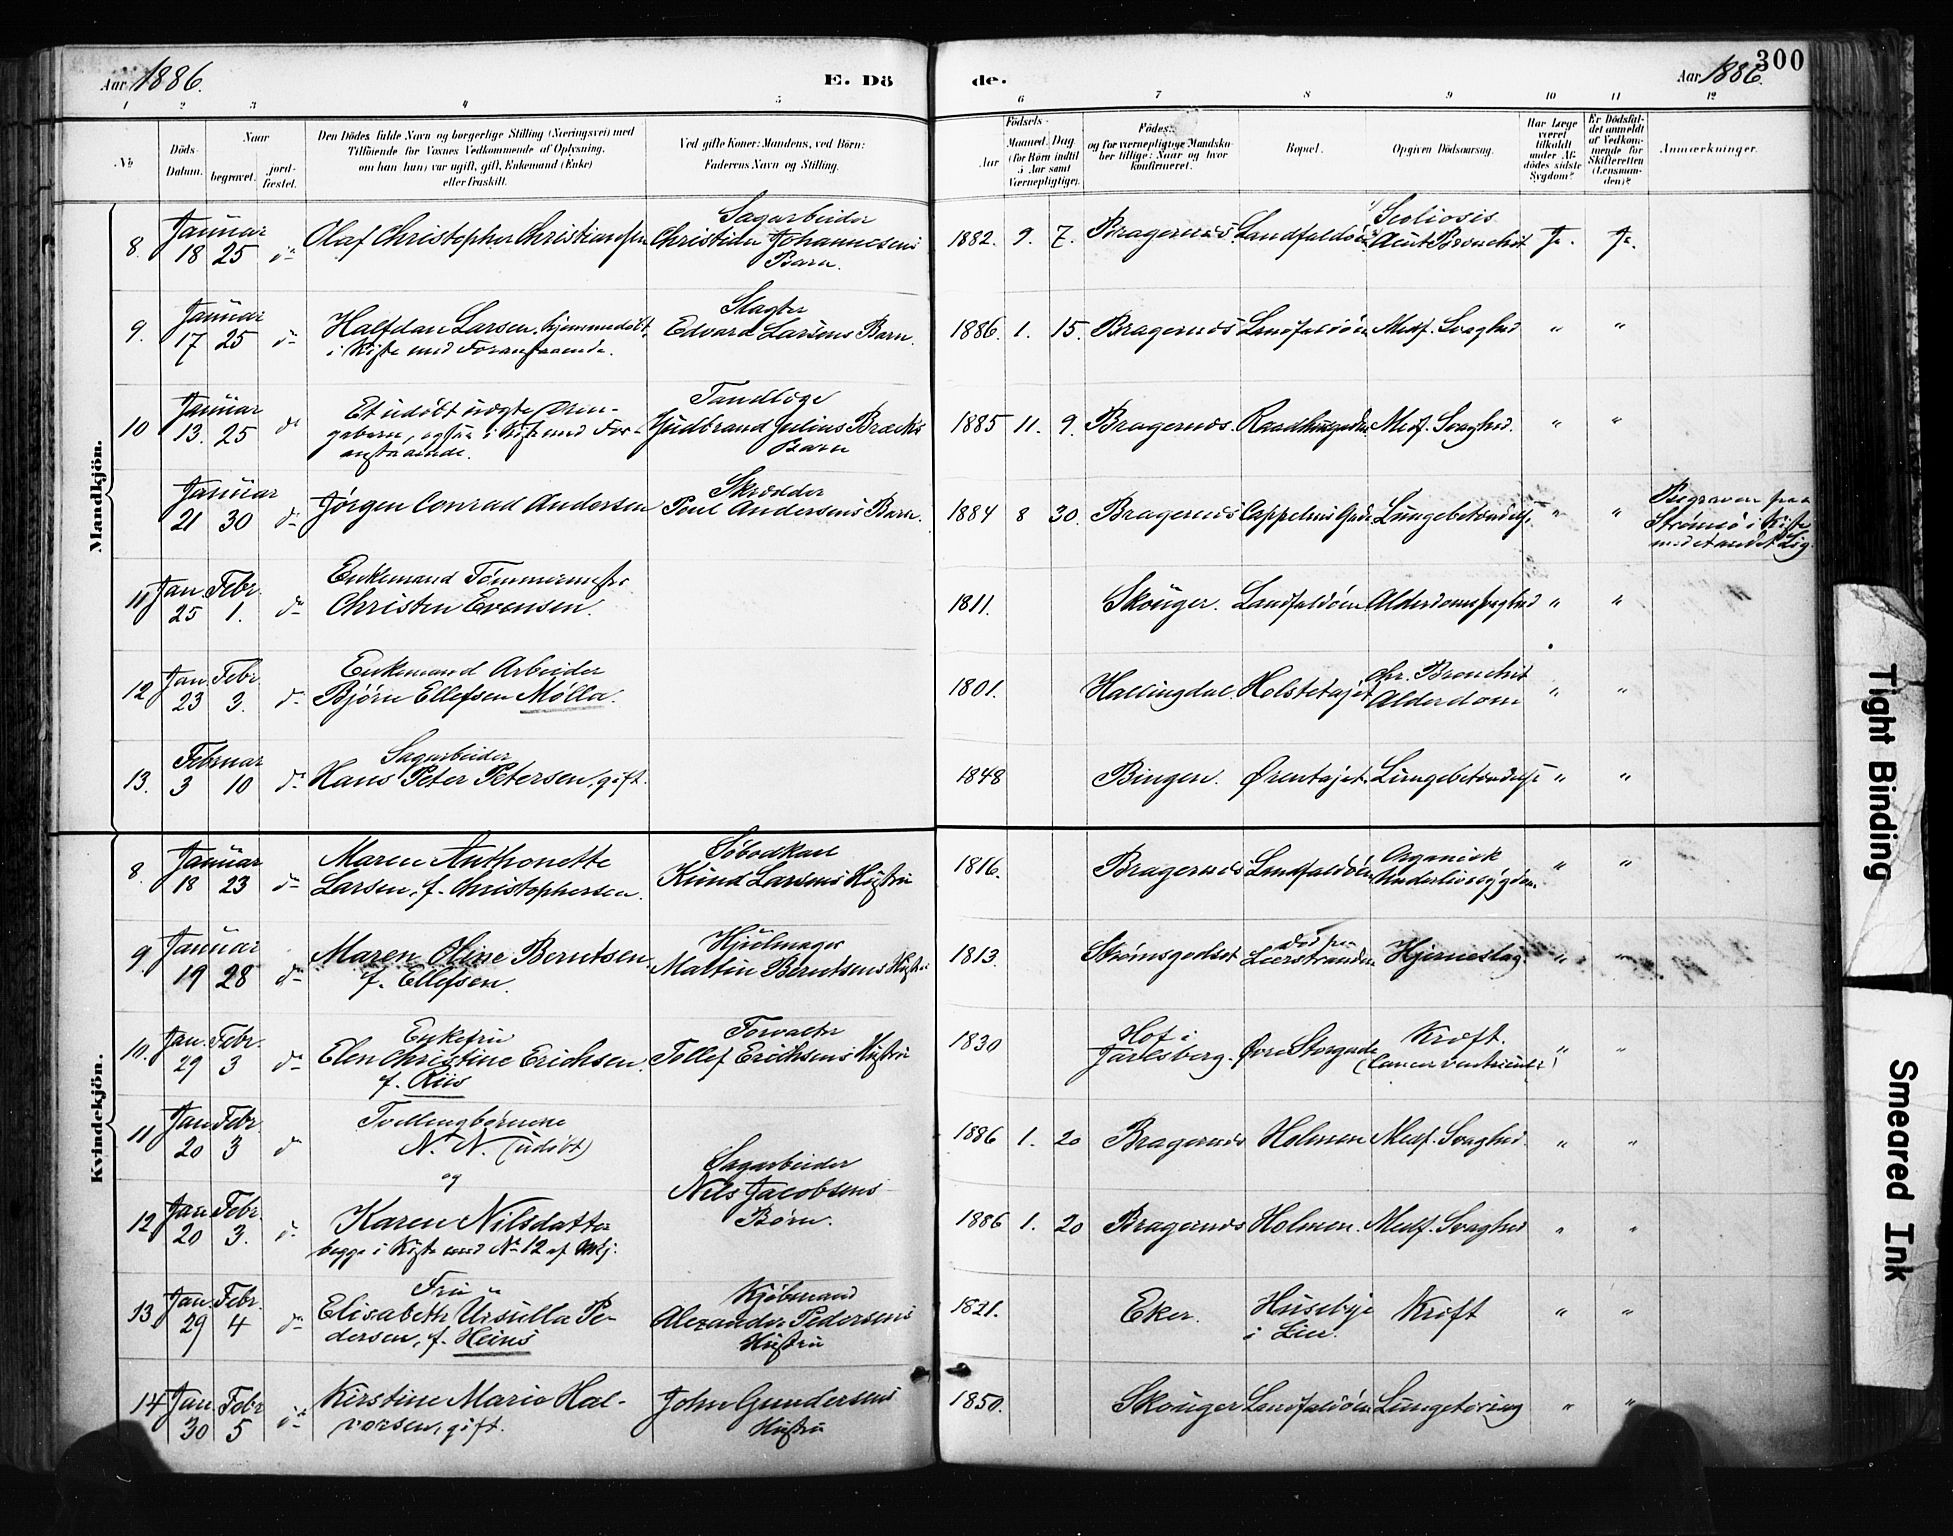 Aar 1886.
E. Dö
de.
Aar 1886.
300
1 2 3 4 5 6 7 8 9 10 11 12
No
Döds-Datum.
Naar
begravet.
jord-fæstet.
Den Dödes fulde Navn og borgerlige Stilling (Næringsvei) med
Tilföiende for Voxnes Vedkommende af Oplysning,
om han (hun) var ugift, gift, Enkemand (Enke)
eller fraskilt.
Ved gifte Koner: Mandens, ved Börn:
Faderens Navn og Stilling.
Födsels-
Aar
Maaned Dag
(for Börn indtil
5 Aar samt
Værnepligtige).
Födested
og for værnepligtige Mandskaber tillige: Naar og hvor
konfirmeret.
Bopæl.
Opgiven Dödsaarsag.
Har Læge
været
tilkaldt
under Afdödes sidste
Sygdom?
Er Dödsfaldet anmeldt
af Vedkommende for
Skifteretten
(Lensmanden)?
Anmærkninger.
Mandkjön.
8. Januar 18 25 do Olaf Christopher Christiansen
Sagarbeider
Christian Johannesens
Barn.
1882. 9. 7. Bragernes. Landfaldöen
Scoliosis
Acut Bronchit Ja. Ja.
9. Januar 17 25 do Halfdan Larsen, hjemmedöbt,
i Kiste med Foranstaaende.
Slagter
Edvard Larsens Barn.
1886. 1. 15. Bragernes Landfaldöen Medf. Svaghed " "
10 Januar 13. 25 do Et udöbt uægte Dren-
gebarn, ogsaa i Kiste med For-
anstaaende.
Tandlæge
Gudbrand Julius Brecks
Barn
1885 11. 9. Bragernes. Raadhusgaden Medf. Svaghed. " "
Januar 21 30 do Jörgen Conrad Andersen
Skrædder
Poul Andersens Barn.
1884 8 30. Bragernes Cappelens Gade Lungebetændelse " "
Begraven paa
Strömsö i Kiste
med et andet Lig.
11 Jan. 25 Febr. 1. do Enkemand Tömmermester
Christen Evensen.
1811. Skouger. Landfaldöen Alderdomssvaghed " "
12 Jan. 23 Febr. 3. do Enkemand Arbeider
Björn Ellefsen Mölla.
1801. Hallingdal Holstetajet
chr. Bronchit
Alderdom " "
13. Februar 3 10 do Sagarbeider
Hans Peter Petersen, gift.
1848 Bingen. Örentajet Lungebetændelse " "
Kvindekjön.
8. Januar 18 23 do Maren Anthonette
Larsen, f. Christophersen.
Knud Larsens Hustru
1816. Bragernes Landfaldöen
Organisk
Underlivssygdom " "
9 Januar 19 28 do Maren Oline Berntsen
f. Ellefsen.
Hjulmager
Martin Berntsens Hustru
1813. Strömsgodset
död paa
Lierstranden Hjerneslag " "
10. Jan. 29 Febr. 3 do Enkefru
Elen Christine Erichsen
f. Riis
Forvalter
Tollef Erichsens Hustru
1830
Hof i
Jarlsberg. Övre Storgade
Kræft.
(Cancer ventriculi) " "
11 Jan. 20 Febr. 3 do Tvillingbörnene
N. N. (udöbt)
og
Sagarbeider
Nils Jacobsens
Börn.
1886 1. 20 Bragernes Holmen Medf. Svaghed. " "
12 Jan. 20 Febr. 3. do Karen Nilsdatter
begge i Kiste med No 12 af Mkj.
1886 1. 20 Bragernes Holmen. Medf. Svaghed " "
13 Jan. 29 Febr. 4 do Fru
Elisabeth Ursulla Pe-
dersen, f. Heins
Kjöbmand
Alexander Pedersens
Hustru
1821. Eker. Husebye
i Lier. Kræft " "
14 Jan. 30 Febr 5 do Kirstine Marie Hal-
vorsen, gift.
John Gundersens
Hustru
1850. Skouger Landfaldöen Lungetæring " "
Tight Binding
Smeared Ink